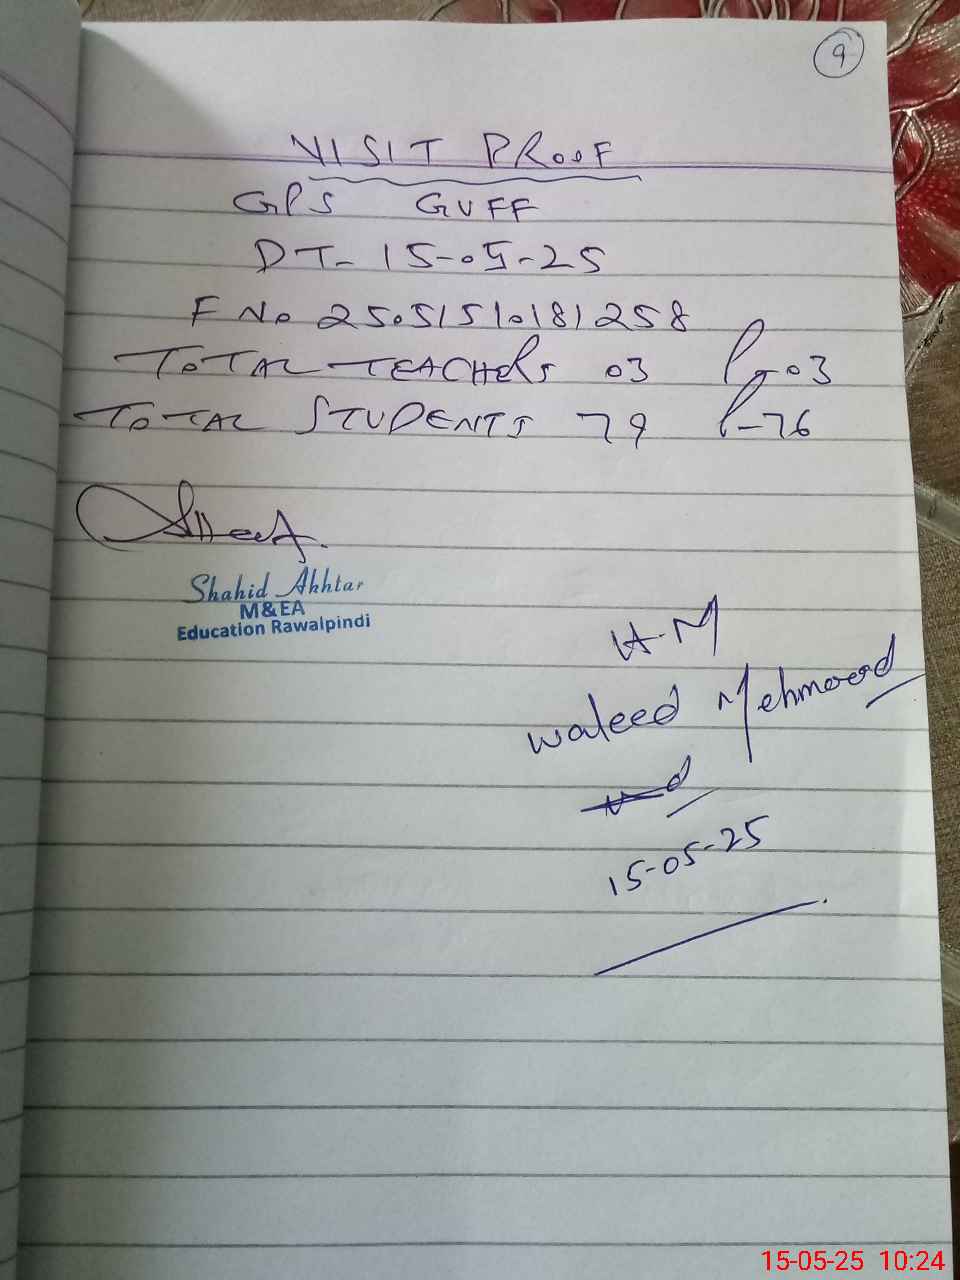 9
VISIT PROOF
GPS GUFF
DT- 15-05-25
F No 25051510181258
TOTAL TEACHERS 03 P-03
TOTAL STUDENTS 79 P-76
Shahid Akhtar
M&EA
Education Rawalpindi
H.M
Waleed Mehmood
15-05-25
15-05-25 10:24